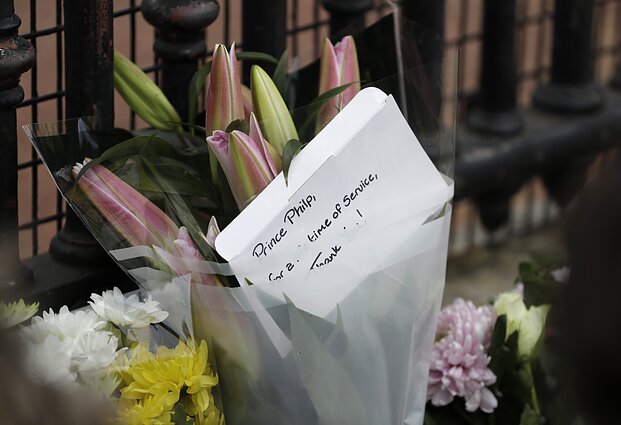 Prince Philp,
for a time of Service,
Thank !